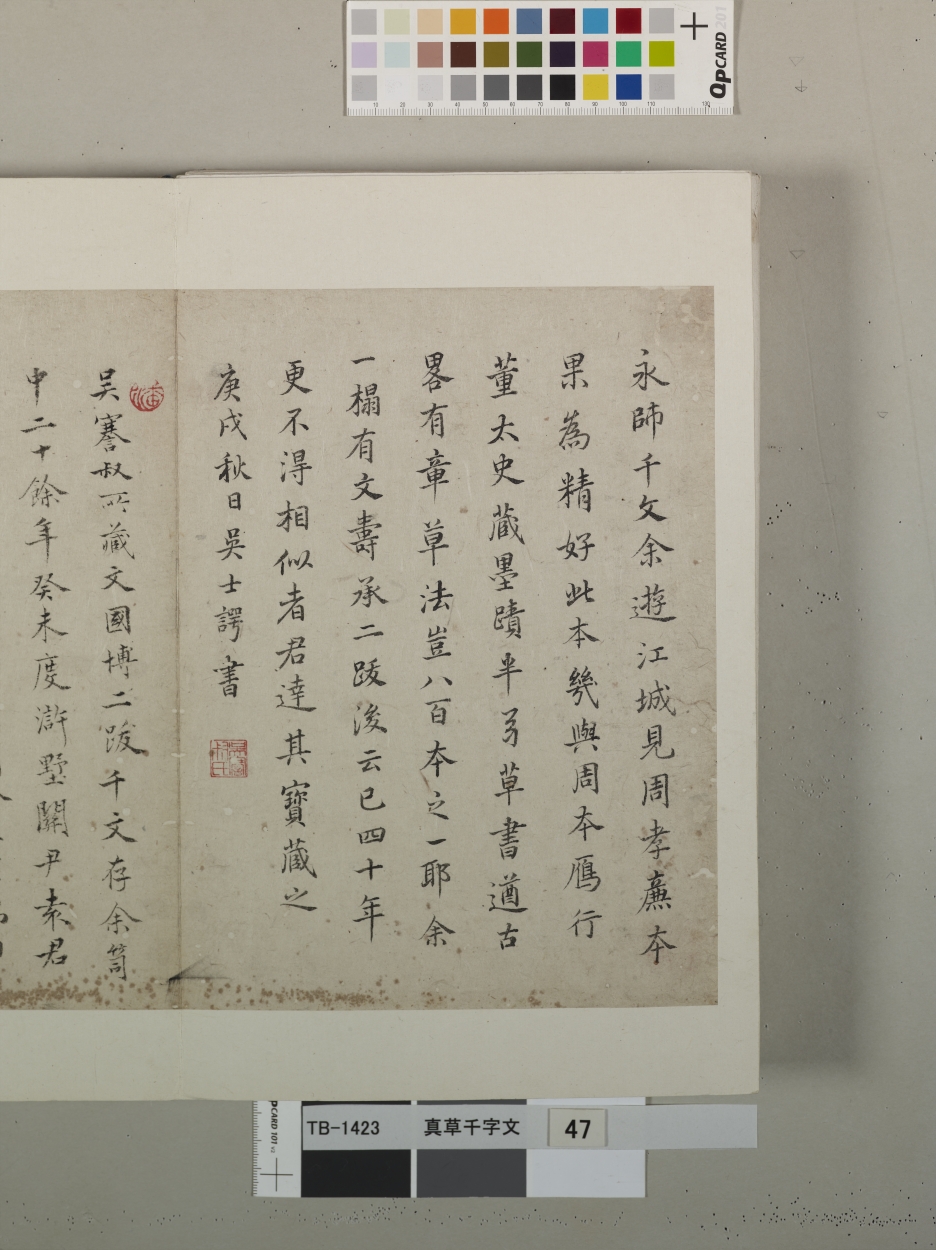 永師千文余遊江城見周孝廉本
果為精好此本幾與周本鴈行
董太史蔵墨蹟半易草書遒古
畧有章草法豈八百本之一耶余
一榻有文壽承二跋後云已四十年
更不得相似者君達其寶蔵之
庚戌秋日吳士諤書
吴謇叔所蔵文國博二跋千文存余笥
中二十餘年癸未度滸墅關尹袁君
QPCARD 201
10 20 30 40 50 60 70 80 90 100 110 130
QPCARD 101
TB-1423 真草千字文 47